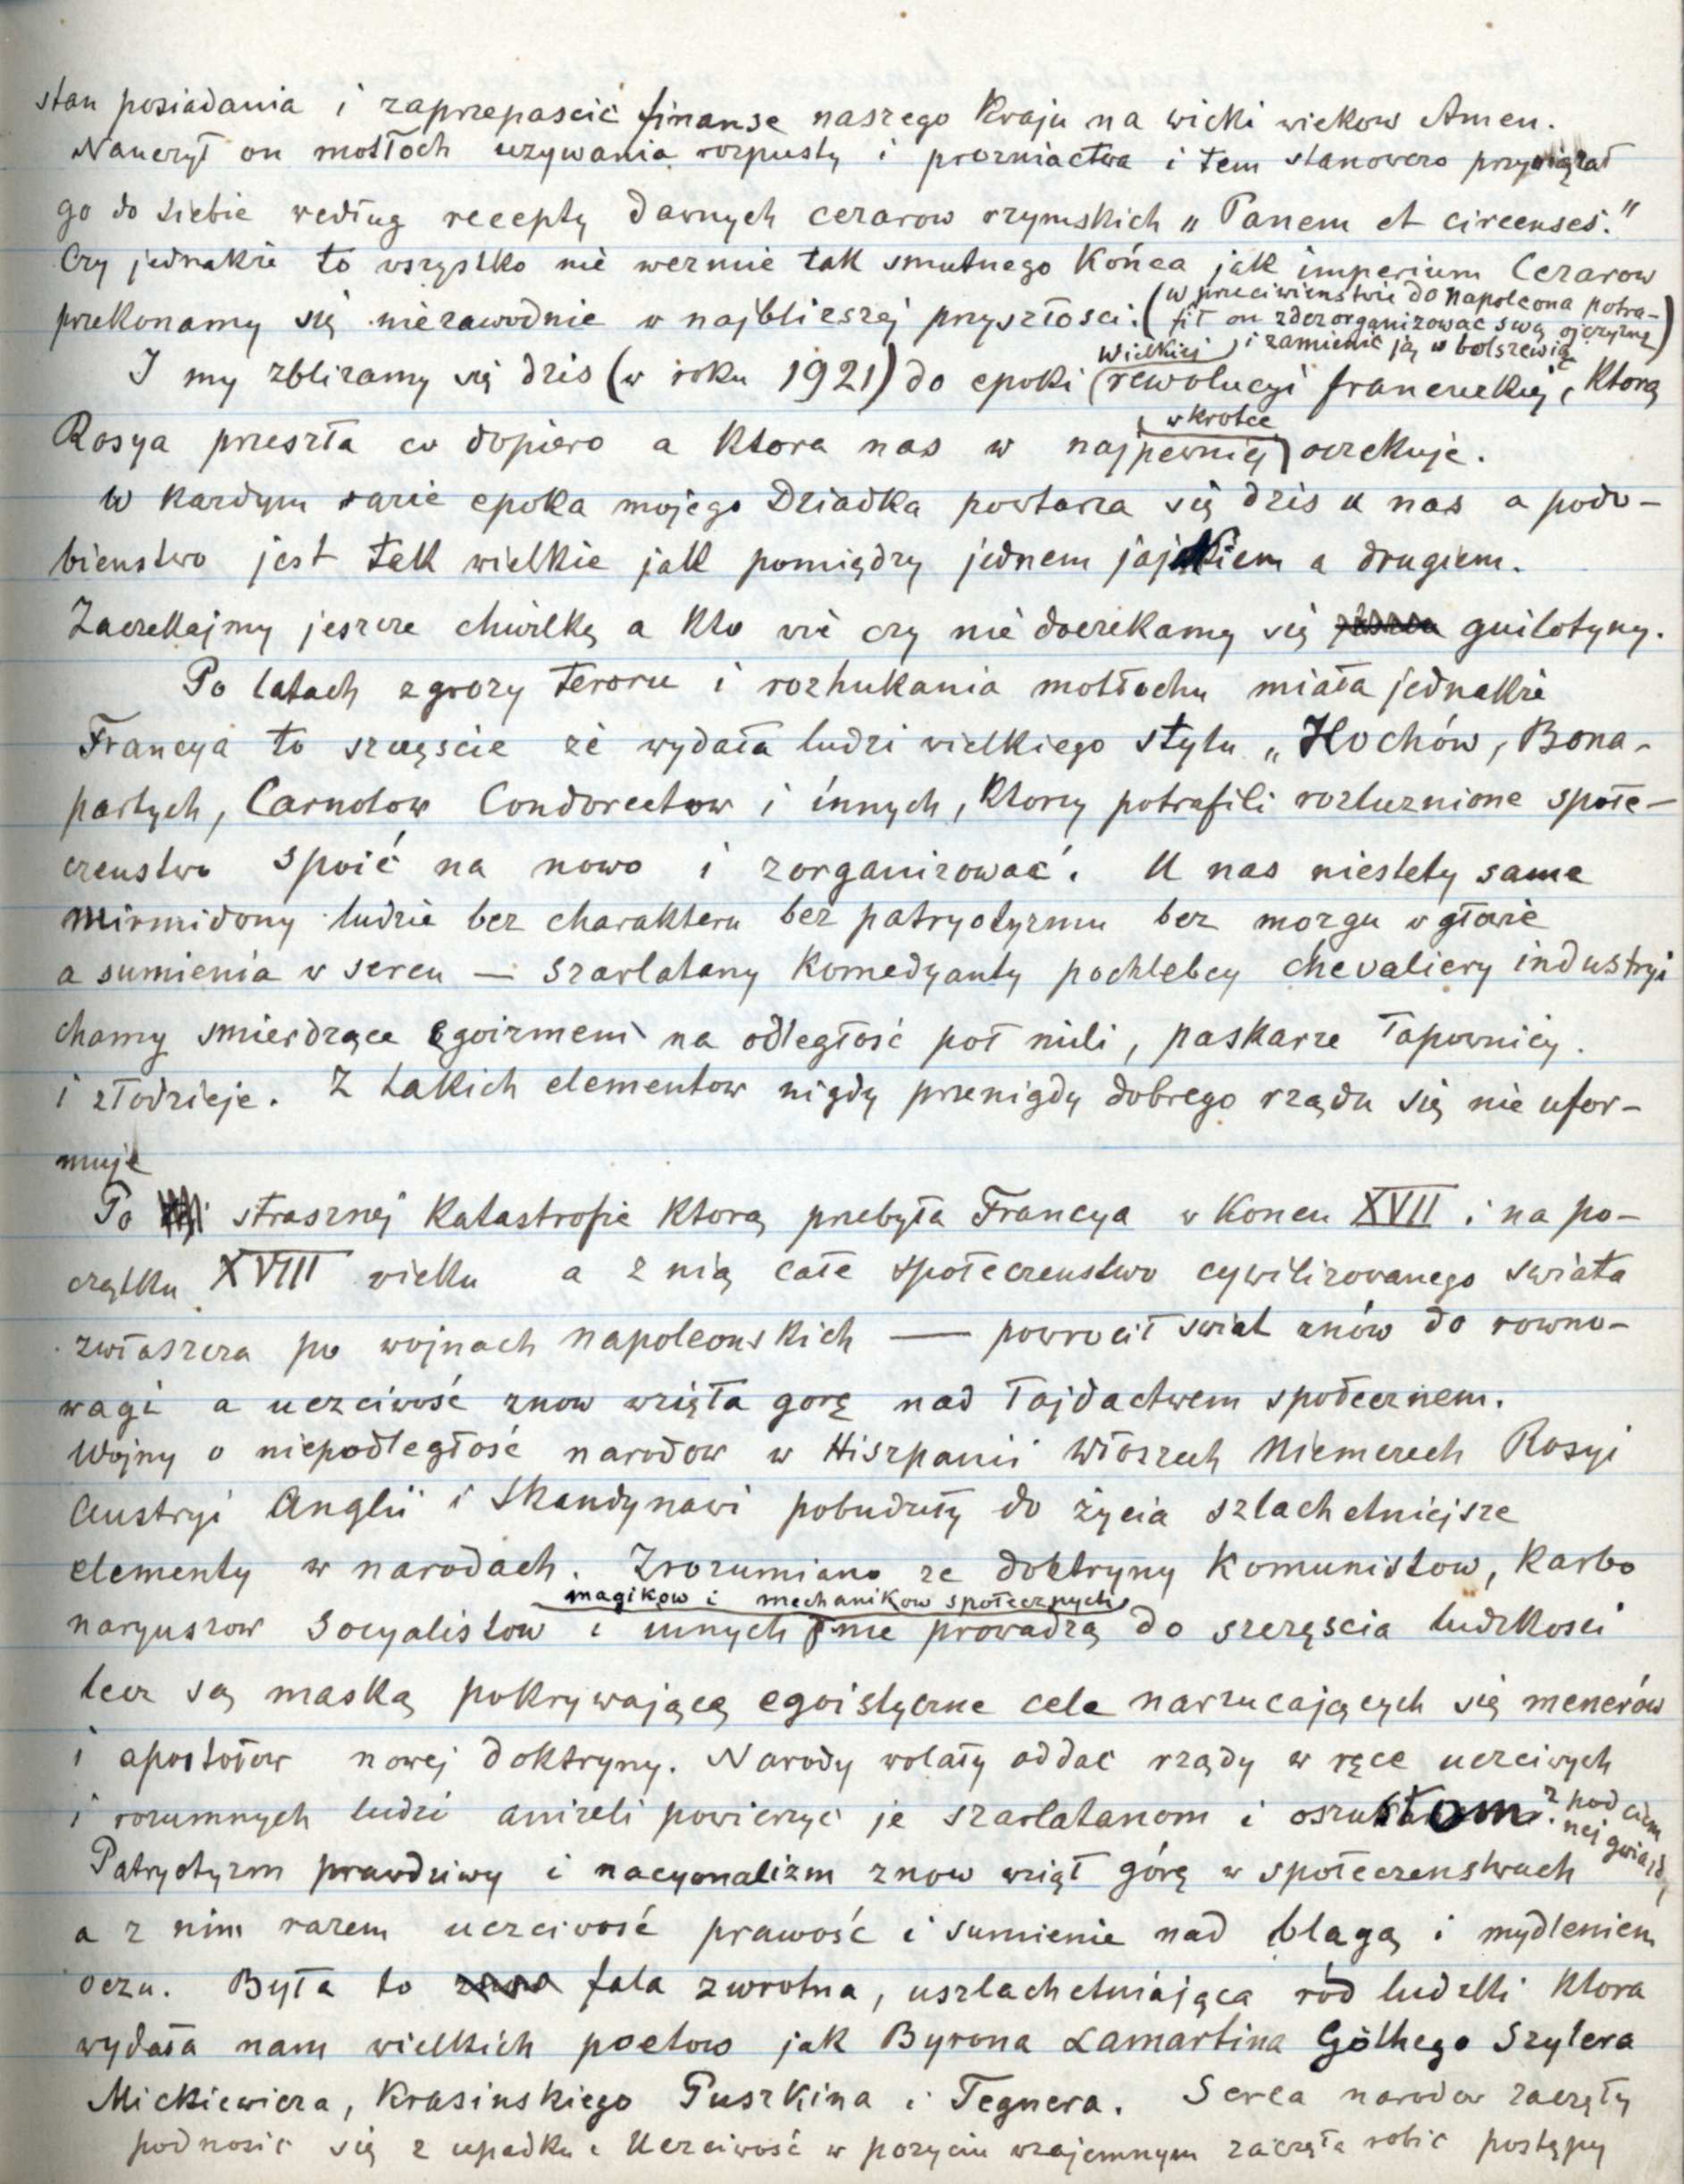 stan posiadania i zaprzepascić finanse naszego Kraju na wieki wiekow Amen.
Nauczył on motłoch uzywania rozpusty i prozniactwa i tem stanowczo przywiązał
go do siebie według recepty dawnych cezarow rzymskich „Panem et circenses."
Czy jednakże to wszystko nie wezmie tak smutnego Końca jak imperium Cezarow
przekonamy się niezawodnie w najbliższej przyszłosci. (w przeciwienstwie do Napoleona potra-
fił on zdezorganizować swą ojczyznę
i zamienić ją w bolszewię)
I my zbliżamy się dzis (w roku 1921) do epoki Wielkiej rewolucyi francuzkiej, Ktorą
Rosya przeszła co dopiero a Ktora nas w najpewniej wkrotce oczekuje.
W Kazdym razie epoka mojego Dziadka powtarza się dzis u nas a podo-
bienstwo jest tak wielkie jak pomiędzy jednem jajkiem a drugiem.
Zaczekajmy jeszcze chwilkę a Kto wie czy nie doczekamy się guilotyny.
Po latach zgrozy teroru i rozhukania motłochu miała jednakże
Francya to szczęscie że wydała ludzi wielkiego stylu „Hochów, Bona-
partych, Carnotow Condorcetow i innych, Ktorzy potrafili rozluznione społe-
czenstwo spoić na nowo i zorganizować. U nas niestety same
mirmidony ludzie bez charakteru bez patryotyzmu bez mozgu w głowie
a sumienia w sercu — szarlatany Komedyanty pochlebcy chevaliery industryi
chamy smierdzące egoizmem na odległość poł mili, paskarze łapownicy.
i złodzieje. Z takich elementow nigdy przenigdy dobrego rządu się nie ufor-
muje
Po strasznej Katastrofie Ktorą przebyła Francya w Koncu XVII i na po-
czątku XVIII wieku a z nią całe społeczenstwo cywilizowanego swiata
zwłaszcza po wojnach napoleonskich — powrocił swiat znów do rowno-
wagi a uczciwość znow wzięła gorę nad łajdactwem społecznem.
Wojny o niepodległość narodow w Hiszpanii Włoszech Niemczech Rosyi
Austryi Anglii i Skandynawi pobudziły do życia szlachetniejsze
elementy w narodach. Zrozumiano ze doktryny Komunistow, Karbo
naryuszow Socyalistow i innych magikow i mechanikow społecznych nie prowadzą do szczęscia ludzkosci
lecz są maską pokrywającą egoistyczne cele narzucających się menerów
i apostołow nowej doktryny. Narody wolały oddac rządy w ręce uczciwych
i rozumnych ludzi anizeli powierzyć je szarlatanom i oszustom z pod ciem
nej gwiazdy
Patryotyzm prawdziwy i nacyonalizm znow wziął górę w społeczenstwach
a z nim razem uczciwość prawość i sumienie nad blagą i mydleniem
oczu. Była to fala zwrotna, uszlachetniająca ród ludzki Ktora
wydała nam wielkich poetow jak Byrona Lamartina Göthego Szylera
Mickiewicza, Krasinskiego Puszkina i Tegnera. Serca narodow zaczęły
podnosic się z upadku i Uczciwość w pozyciu wzajemnym zaczęła robic postępy